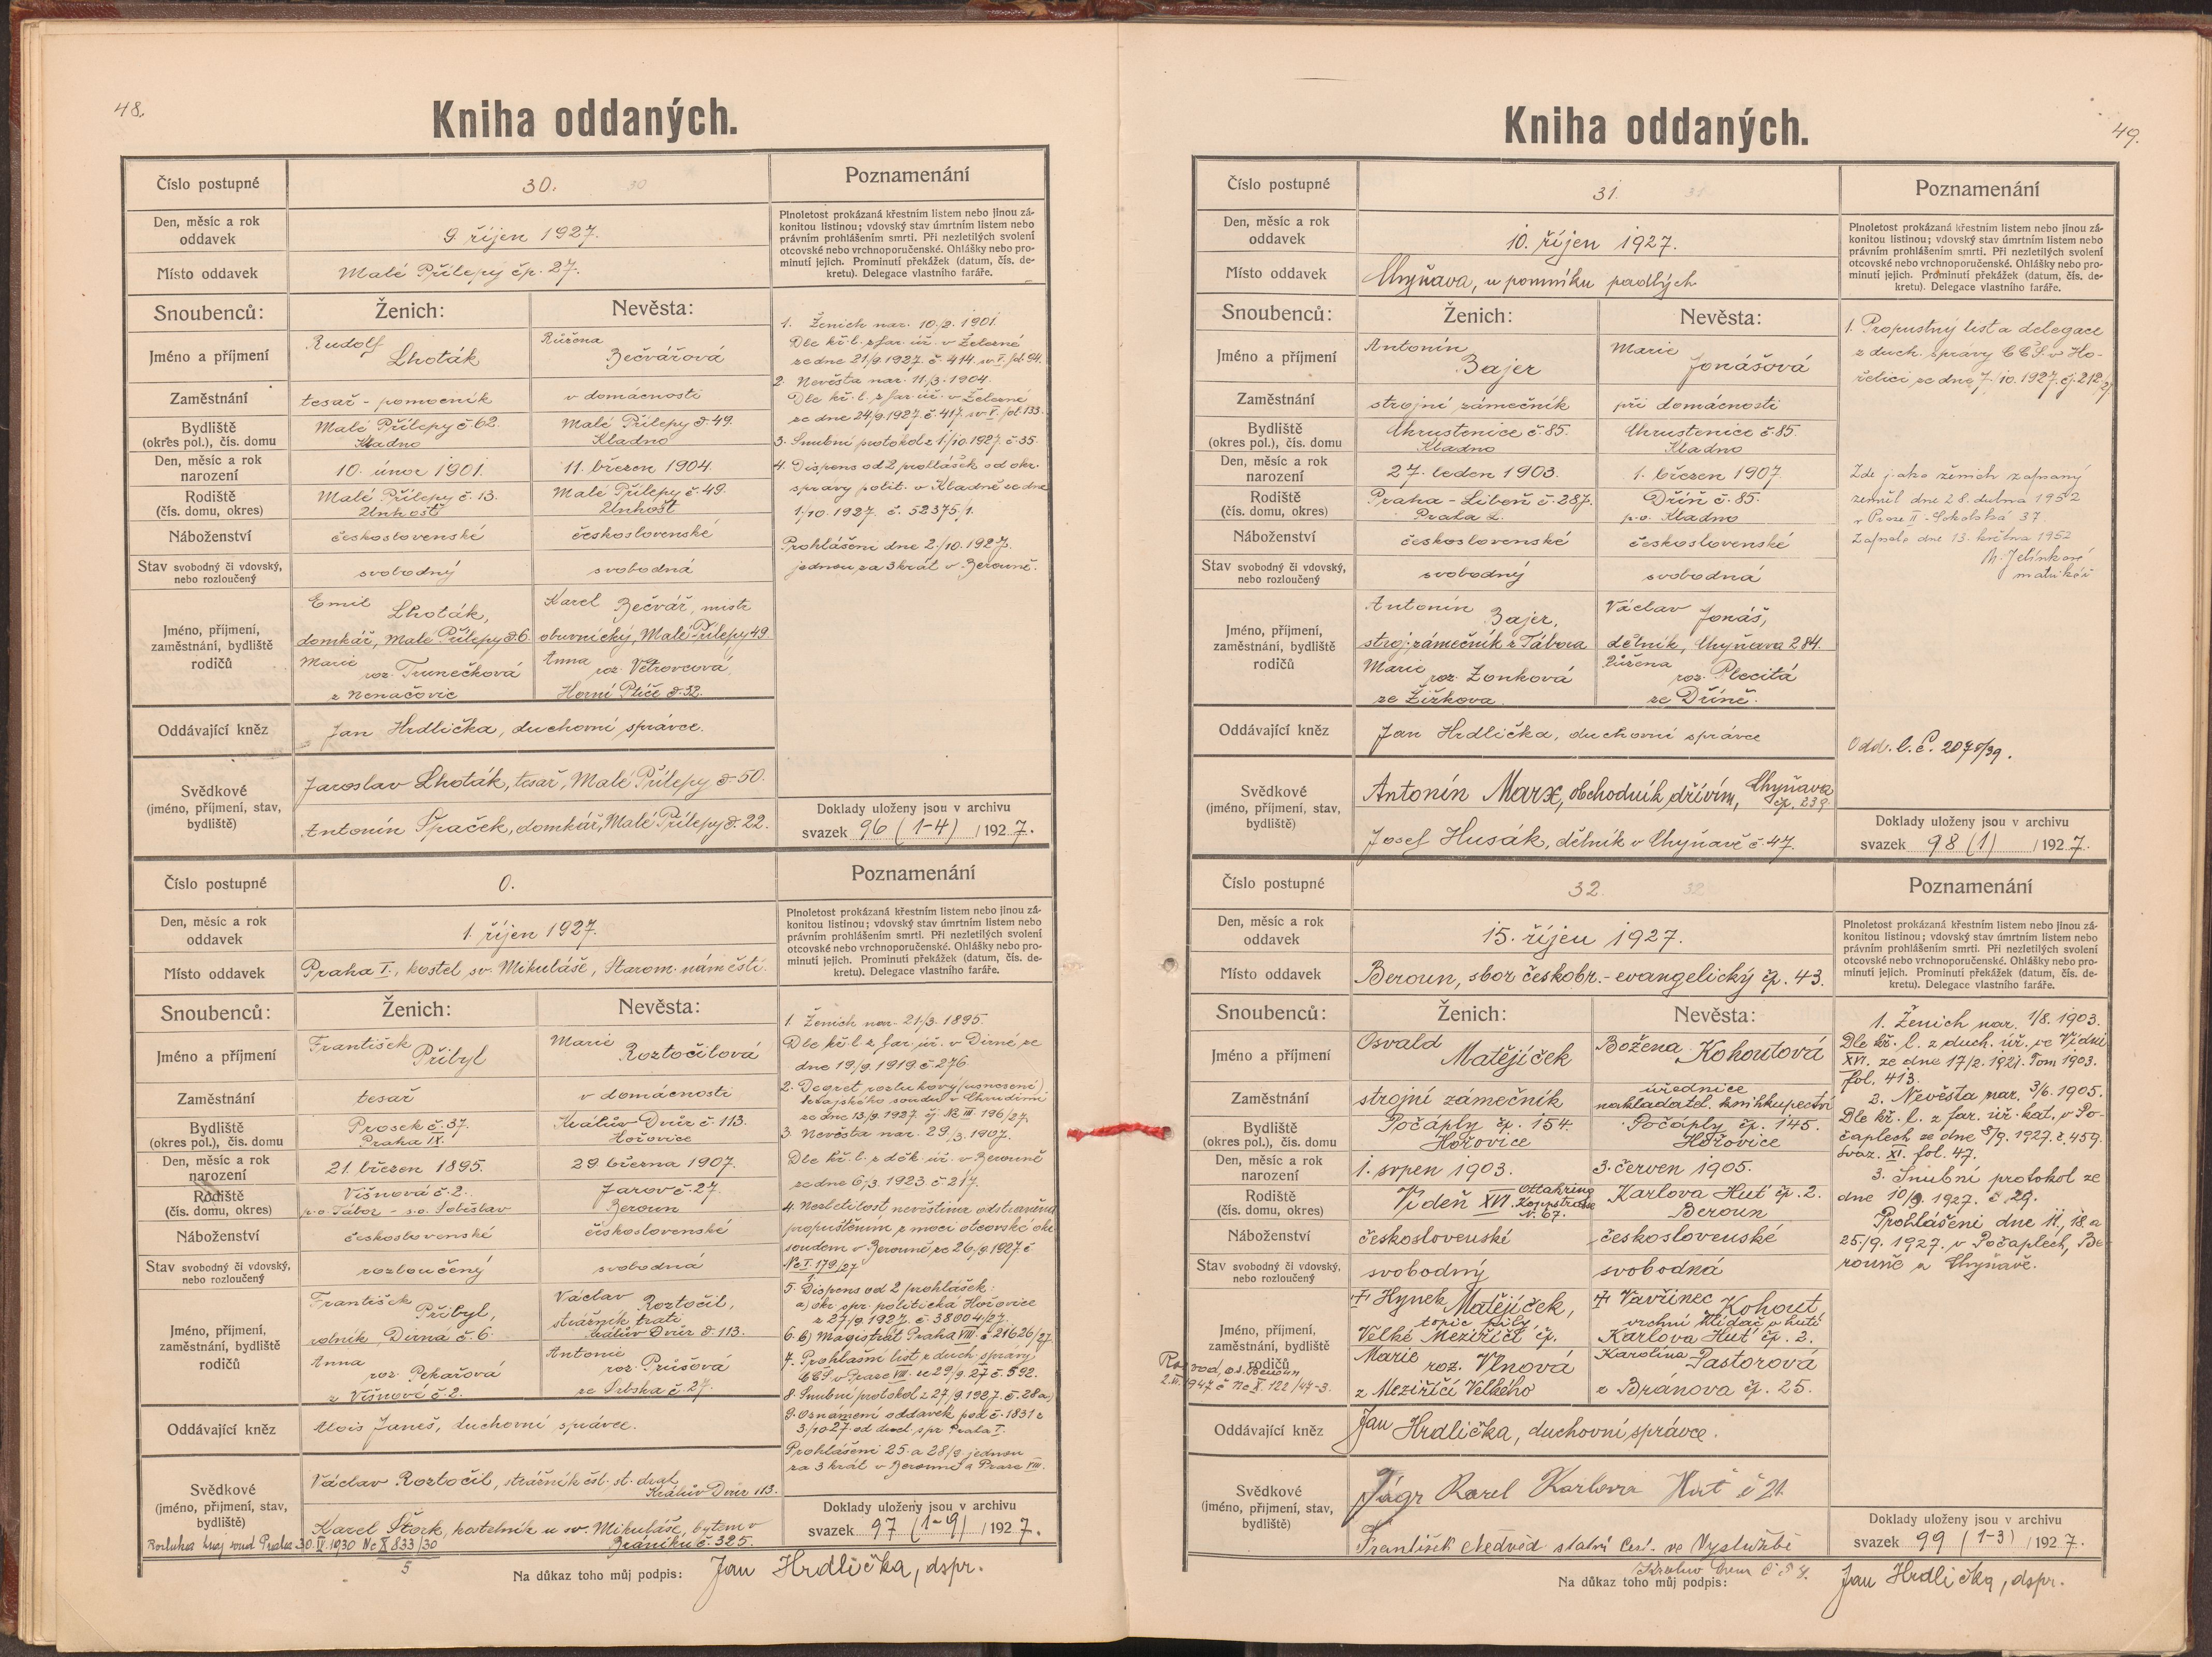 48.
Kniha oddaných.
Číslo postupné
30.
30
Poznamenání
Den, měsíc a rok
oddavek
9. říjen 1927.
Místo oddavek
Malé Přílepy čp. 27.
Plnoletost prokázaná křestním listem nebo jinou zá-
konitou listinou; vdovský stav úmrtním listem nebo
právním prohlášením smrti. Při nezletilých svolení
otcovské nebo vrchnoporučenské. Ohlášky nebo pro-
minutí jejich. Prominutí překážek (datum, čís. de-
kretu). Delegace vlastního faráře.
Snoubenců:
Ženich:
Nevěsta:
Jméno a příjmení
Rudolf
Lhoták
Růžena
Bečvářová
Zaměstnání
tesař - pomocník
v domácnosti
Bydliště
(okres pol.), čís. domu
Malé Přílepy č. 62.
Kladno
Malé Přílepy č. 49.
Kladno
Den, měsíc a rok
narození
10. únor 1901.
11. březen 1904.
Rodiště
(čís. domu, okres)
Malé Přílepy č. 13.
Unhošť
Malé Přílepy č. 49.
Unhošť
Náboženství
československé
československé
Stav svobodný či vdovský,
nebo rozloučený
svobodný
svobodná
Jméno, příjmení,
zaměstnání, bydliště
rodičů
Emil
Lhoták,
domkář, Malé Přílepy č. 6
Marie
roz. Trunečková
z Nenačovic
Karel Bečvář, mistr
obuvnický, Malé Přílepy 49
Anna
roz. Vetrovcová,
Horní Ptíče č. 32.
Oddávající kněz
Jan Hrdlička, duchovní správce.
Svědkové
(jméno, příjmení, stav,
bydliště)
Jaroslav Lhoták, tesař, Malé Přílepy č. 50.
Antonín Špaček, domkář, Malé Přílepy č. 22.
1. Ženich nar. 10./2. 1901.
Dle kř. l. z far. úř. v Železné
ze dne 21/9. 1927. č. 414. sv. V. fol. 94.
2. Nevěsta nar. 11./3. 1904.
Dle kř. l. z far. úř. v Železné
ze dne 24/9. 1927. č. 417. sv. V. fol. 133.
3. Snubní protokol z 1./10. 1927. č. 35.
4. Dispens od 2 prohlášek od okr.
správy polit. v Kladně ze dne
1./10. 1927. č. 52375/1.
Prohlášení dne 2./10. 1927.
jednou za 3 krát v Berouně.
Doklady uloženy jsou v archivu
svazek 96 (1-4) / 1927.
Číslo postupné
0.
Poznamenání
Den, měsíc a rok
oddavek
1. říjen 1927.
Místo oddavek
Praha I., kostel sv. Mikuláše, Starom. náměstí.
Plnoletost prokázaná křestním listem nebo jinou zá-
konitou listinou; vdovský stav úmrtním listem nebo
právním prohlášením smrti. Při nezletilých svolení
otcovské nebo vrchnoporučenské. Ohlášky nebo pro-
minutí jejich. Prominutí překážek (datum, čís. de-
kretu). Delegace vlastního faráře.
Snoubenců:
Ženich:
Nevěsta:
Jméno a příjmení
František
Přibyl
Marie
Roztočilová
Zaměstnání
tesař
v domácnosti
Bydliště
(okres pol.), čís. domu
Prosek č. 37.
Praha IX.
Králův Dvůr č. 113.
Hořovice
Den, měsíc a rok
narození
21. březen 1895.
29. března 1907.
Rodiště
(čís. domu, okres)
Višňová č. 2.
p.o. Tábor - s.o. Soběslav
Jarov č. 27.
Beroun
Náboženství
československé
československé
Stav svobodný či vdovský,
nebo rozloučený
rozloučený
svobodná
Jméno, příjmení,
zaměstnání, bydliště
rodičů
František
Přibyl,
rolník, Dirná č. 6.
Anna
roz. Pekařová
z Višňové č. 2.
Václav
Roztočil,
strážník trati
Králův Dvůr č. 113.
Antonie
roz. Průšová
ze Srbska č. 27.
Oddávající kněz
Alois Janeš, duchovní správce.
Svědkové
(jméno, příjmení, stav,
bydliště)
Václav Roztočil, strážník čsl. st. drah
Králův Dvůr 113.
Karel Štork, kostelník u sv. Mikuláše, bytem v
Braníku č. 325.
Rozluka kraj. soud Praha 30. IV. 1930 Nc X 833/30
5
1. Ženich nar. 21./3. 1895.
Dle kř. l. z far. úř. v Dirné ze
dne 19/9. 1919. č. 276.
2. Degret rozlukový (usnesení)
krajského soudu v Chrudimi
ze dne 13/9. 1927. čj. Nc III. 196/27.
3. Nevěsta nar. 29/3. 1907.
Dle kř. l. z děk. úř. v Berouně
ze dne 6/3. 1923 č. 217.
4. Nezletilost nevěstina odstraněna
propuštěním z moci otcovské okr.
soudem v Berouně ze 26/9. 1927. č
Nc I. 179/27
5. Dispens od 2 prohlášek:
a) okr. spr. politická Hořovice
z 27/9. 1927. č. 38004/27.
6. b) Magistrát Praha VIII. č 21626/27
7. Prohlašní list z duch. správy
CČS. v Praze VIII. ze 29/9. 27 č. 592.
8. Snubní protokol z 27/9. 1927. č. 28 a)
9. Oznámení oddavek pod č. 1831 z
3/10 27. od duch. spr. Praha I.
Prohlášení 25. a 28/9. jednou
za 3 krát v Berouně a Praze VIII.
Doklady uloženy jsou v archivu
svazek 97 (1-9) / 1927.
Na důkaz toho můj podpis: Jan Hrdlička, dspr.
49.
Kniha oddaných.
Číslo postupné
31.
31
Poznamenání
Den, měsíc a rok
oddavek
10. říjen 1927.
Místo oddavek
Chyňava, u pomníku padlých
Plnoletost prokázaná křestním listem nebo jinou zá-
konitou listinou; vdovský stav úmrtním listem nebo
právním prohlášením smrti. Při nezletilých svolení
otcovské nebo vrchnoporučenské. Ohlášky nebo pro-
minutí jejich. Prominutí překážek (datum, čís. de-
kretu). Delegace vlastního faráře.
Snoubenců:
Ženich:
Nevěsta:
Jméno a příjmení
Antonín
Bajer
Marie
Jonášová
Zaměstnání
strojní zámečník
při domácnosti
Bydliště
(okres pol.), čís. domu
Chrustenice č. 85.
Kladno
Chrustenice č. 85.
Kladno
Den, měsíc a rok
narození
27. leden 1903.
1. březen 1907.
Rodiště
(čís. domu, okres)
Praha - Libeň č. 287.
Praha L.
Dříň č. 85.
p.o. Kladno
Náboženství
československé
československé
Stav svobodný či vdovský,
nebo rozloučený
svobodný
svobodná
Jméno, příjmení,
zaměstnání, bydliště
rodičů
Antonín
Bajer,
stroj. zámečník z Tábora
Marie
roz. Zonková
ze Žižkova.
Václav
Jonáš,
dělník, Chyňava 284.
Růžena
roz. Plecitá
ze Dříně.
Oddávající kněz
Jan Hrdlička, duchovní správce
Svědkové
(jméno, příjmení, stav,
bydliště)
Antonín Marx, obchodník dřívím, Chyňava
čp. 239.
Josef Husák, dělník v Chyňavě č. 47.
1. Propustný list a delegace
z duch. správy CČS. v Ho-
řelici ze dne 7./10. 1927. čj. 212/27
Zde jako ženich zapsaný
zemřel dne 28. dubna 1952
v Praze II - Sokolská 37.
Zapsáno dne 13. května 1952
M. Jelínková
matrikář
Odd. l. č. 2070/39.
Doklady uloženy jsou v archivu
svazek 98 (1) / 1927.
Číslo postupné
32.
32
Poznamenání
Den, měsíc a rok
oddavek
15. říjen 1927.
Místo oddavek
Beroun, sbor českobr.-evangelický čp. 43.
Plnoletost prokázaná křestním listem nebo jinou zá-
konitou listinou; vdovský stav úmrtním listem nebo
právním prohlášením smrti. Při nezletilých svolení
otcovské nebo vrchnoporučenské. Ohlášky nebo pro-
minutí jejich. Prominutí překážek (datum, čís. de-
kretu). Delegace vlastního faráře.
Snoubenců:
Ženich:
Nevěsta:
Jméno a příjmení
Osvald
Matějíček
Božena Kohoutová
Zaměstnání
strojní zámečník
úřednice
nakladatel. knihkupectví
Bydliště
(okres pol.), čís. domu
Počáply čp. 154.
Hořovice
Počáply čp. 145.
Hořovice
Den, měsíc a rok
narození
1. srpen 1903.
3. červen 1905.
Rodiště
(čís. domu, okres)
Vídeň XVI. Ottakring
Koppstrasse
N. 67.
Karlova Huť čp. 2.
Beroun
Náboženství
československé
československé
Stav svobodný či vdovský,
nebo rozloučený
svobodný
svobodná
Jméno, příjmení,
zaměstnání, bydliště
rodičů
Hynek Matějíček,
topič pily,
Velké Meziříčí čp.
Marie roz. Vlnová
z Meziříčí Velkého
Vavřinec Kohout,
vrchní hlídač v huti
Karlova Huť čp. 2.
Karolína Pastorová
z Bránova čp. 25.
Rozvod, os. Beroun
2. XI. 1947 č Nc X. 122/47-3.
Oddávající kněz
Jan Hrdlička, duchovní správce.
Svědkové
(jméno, příjmení, stav,
bydliště)
Jágr Karel Karlova Huť č 21.
František Nedvěd statní cest. ve Vyslužbě
Králův Dvůr č 54.
1. Ženich nar. 1/8. 1903.
Dle kř. l. z duch. úř. ve Vídni
XVI. ze dne 17/2. 1921. Tom 1903.
fol. 413.
2. Nevěsta nar. 3/6. 1905.
Dle kř. l. z far. úř. kat. v Po-
čaplech ze dne 8/9. 1927. č. 459.
svaz. XI. fol. 47.
3. Snubní protokol ze
dne 10/9. 1927. č. 29.
Prohlášení dne 11., 18 a
25./9. 1927. v Počaplech, Be-
rouně a Chyňavě.
Doklady uloženy jsou v archivu
svazek 99 (1-3) / 1927.
Na důkaz toho můj podpis: Jan Hrdlička, dspr.